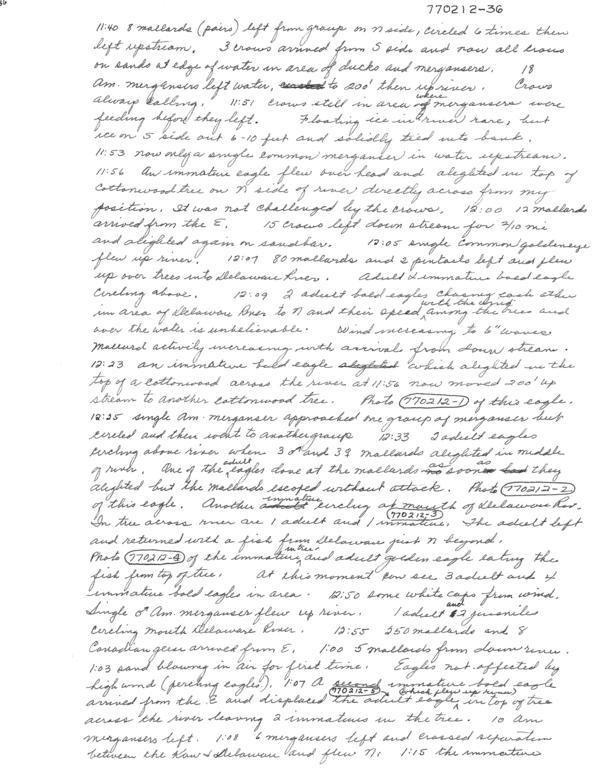 770212-36
11:40 8 mallards (pairs) left from group on N side, circled 6 times then
left upstream. 3 crows arrived from S side and now all crows
on sands at edge of water in area of ducks and mergansers. 18
Am. mergansers left water, to 200' then up river. Crows
always calling. 11:51 crows still in area where mergansers were
feeding before they left. Floating ice in river rare, but
ice on S side out 6-10 feet and solidly tied into bank.
11:53 now only a single common merganser in water upstream.
11:56 An immature eagle flew over head and alighted in top of
Cottonwood tree on N side of river directly across from my
position. It was not challenged by the crows. 12:00 12 mallards
arrived from the E. 15 crows left down stream for 2/10 mi
and alighted again on sandbar. 12:05 single common goldeneye
flew up river. 12:07 80 mallards and 2 pintails left and flew
up over trees into Delaware River. Adult & immature bald eagle
circling above. 12:09 2 adult bald eagles chasing each other
in area of Delaware River to N and their speed with the wind among the trees and
over the water is unbelievable. Wind increasing to 6" waves
Mallard activity increasing with arrivals from down stream.
12:23 an immature bald eagle alighted which alighted in the
top of a cottonwood across the river at 11:56 now moved 200' up
stream to another cottonwood tree. Photo 770212-1 of this eagle.
12:25 single Am. merganser approached one group of merganser but
circled and then went to another group 12:33 2 adult eagles
circling above river when 3♂ and 3♀ mallards alighted in middle
of river. One of the adult eagles dove at the mallards as soon as they
alighted but the mallards escaped without attack. Photo 770212-2
of this eagle. Another immature circling at mouth of Delaware River.
770212-3
In tree across river are 1 adult and 1 immature. The adult left
and returned with a fish from Delaware just N beyond.
Photo 770212-4 of the immature in tree and adult golden eagle eating the
fish from top of tree. At this moment can see 3 adult and 4
immature bald eagles in area. 12:50 some white caps from wind.
Single ♂ Am. merganser flew up river. 1 adult and 2 juveniles
circling mouth Delaware River. 12:55 250 mallards and 8
Canadian geese arrived from E. 1:00 5 mallards from down river.
1:03 sand blowing in air for first time. Eagles not affected by
high wind (perching eagles). 1:07 A second immature bald eagle
770212-5 (which flew up river)
arrived from the E and displaced the adult eagle in top of tree
across the river leaving 2 immatures in the tree. 10 Am
mergansers left. 1:08 6 mergansers left and crossed separation
between the Kaw & Delaware and flew N. 1:15 the immature